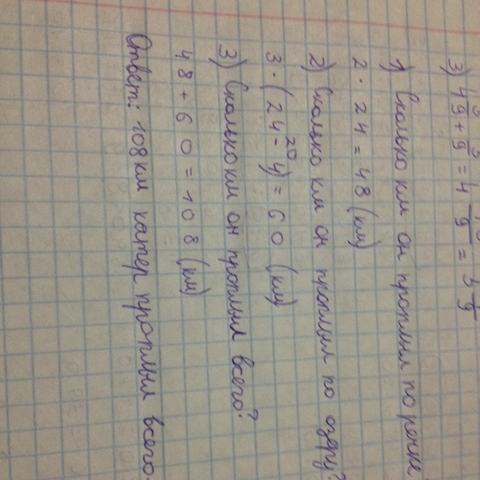 3) 4 5/9 + 5/9 = 4 10/9 = 5 1/9
1) Сколько км он проплыл по речке?
2 · 24 = 48 (км)
2) Сколько км он проплыл по озеру?
20
3 · (24 - 4) = 60 (км)
3) Сколько км он проплыл всего?
48 + 60 = 108 (км)
Ответ: 108 км катер проплыл всего.